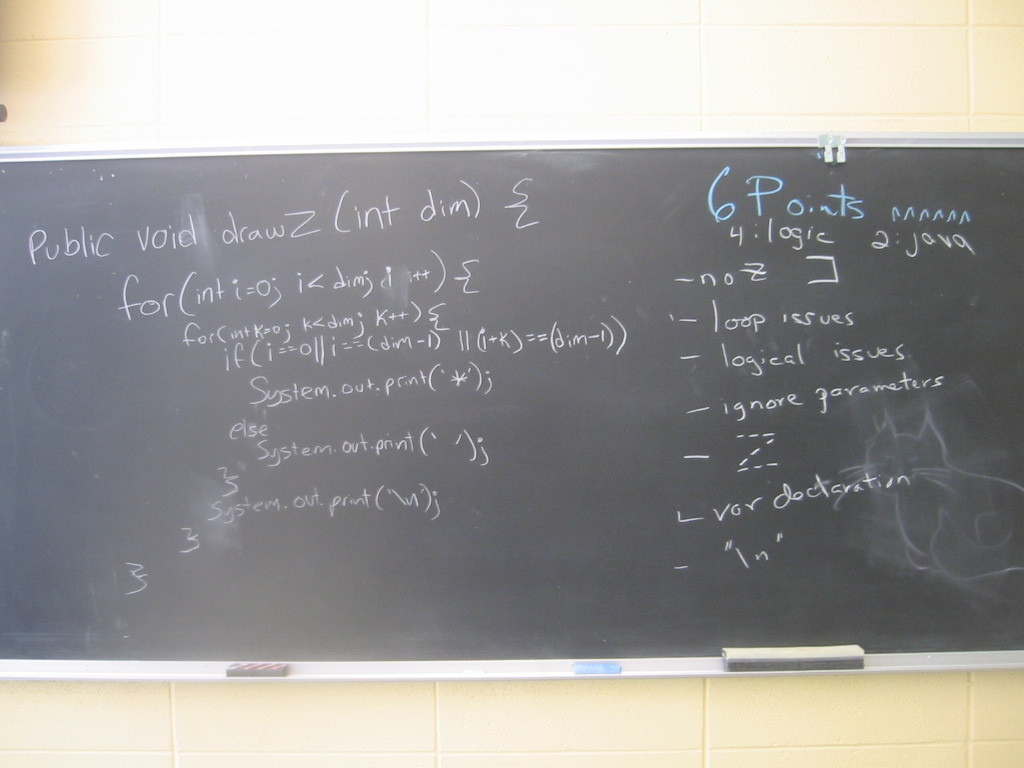 Public void drawZ (int dim) {
for(int i=0; i<dim; i++) {
for(int k=0; k<dim; k++) {
if(i==0||i==(dim-1) ||(i+k)==(dim-1))
System.out.print('*');
else
System.out.print(' ');
}
System.out.print('\n');
}
}
6 Points
4:logic 2:java
- no Z
- loop issues
- logical issues
- ignore parameters
- Z
- var declaration
- "\n"